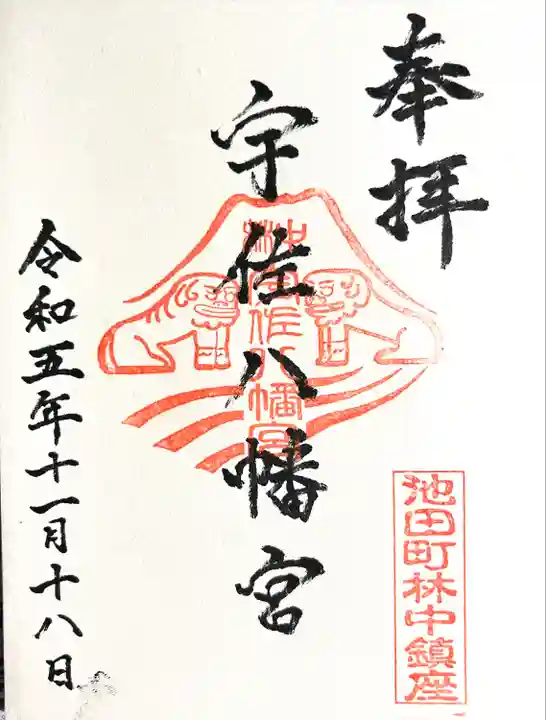 奉拝
宇佐八幡宮
林中
宇佐八幡宮
令和五年十一月十八日
池田町林中鎮座